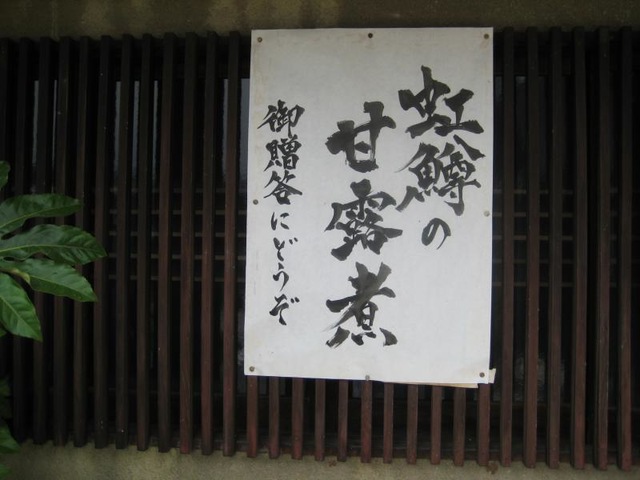 虹鱒の
甘露煮
御贈答にどうぞ